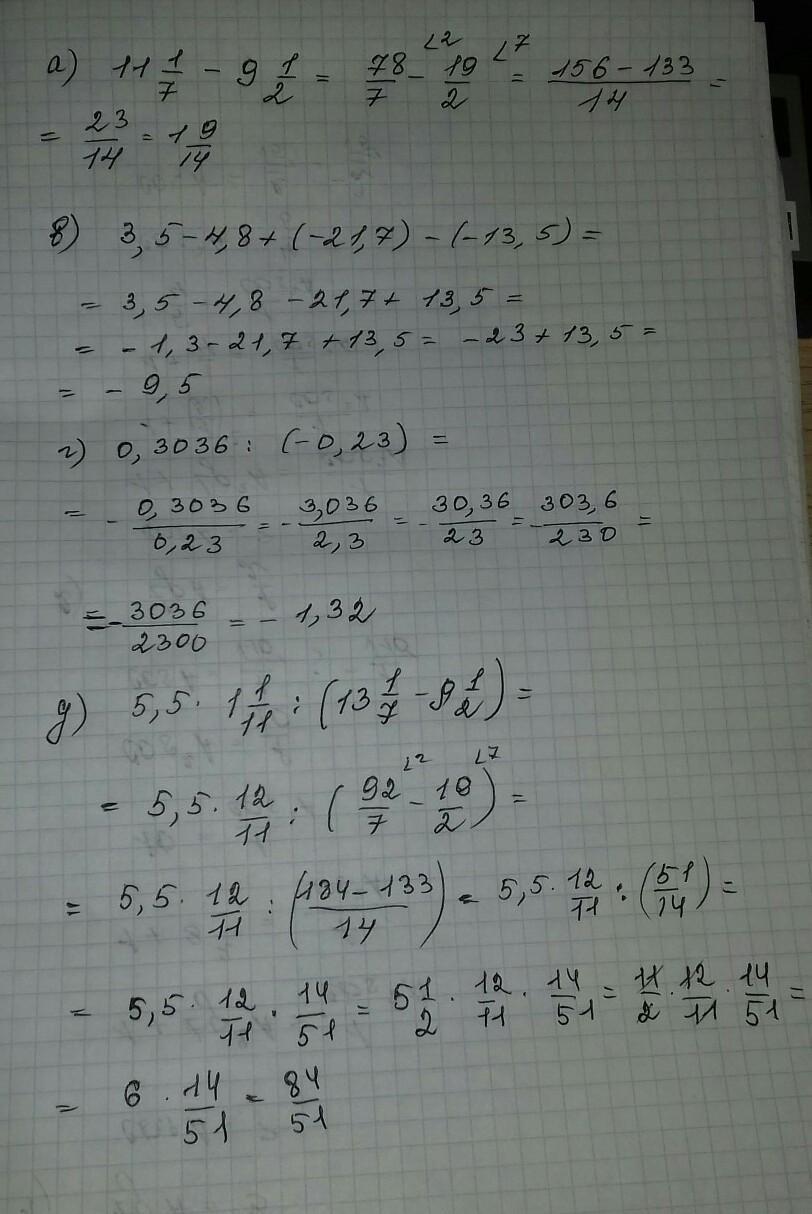 а) 11 1/7 - 9 1/2 = 78/7 ∠2 - 19/2 ∠7 = (156 - 133)/14 =
= 23/14 = 1 9/14
в) 3,5 - 4,8 + (-21,7) - (-13,5) =
= 3,5 - 4,8 - 21,7 + 13,5 =
= - 1,3 - 21,7 + 13,5 = - 23 + 13,5 =
= - 9,5
г) 0,3036 : (-0,23) =
= - 0,3036/0,23 = - 3,036/2,3 = - 30,36/23 = - 303,6/230 =
= - 3036/2300 = - 1,32
д) 5,5 · 1 1/11 : (13 1/7 - 9 1/2) =
= 5,5 · 12/11 : (92/7 ∠2 - 19/2 ∠7) =
= 5,5 · 12/11 : ((184 - 133)/14) = 5,5 · 12/11 : (51/14) =
= 5,5 · 12/11 · 14/51 = 5 1/2 · 12/11 · 14/51 = 11/2 · 12/11 · 14/51 =
= 6 · 14/51 = 84/51